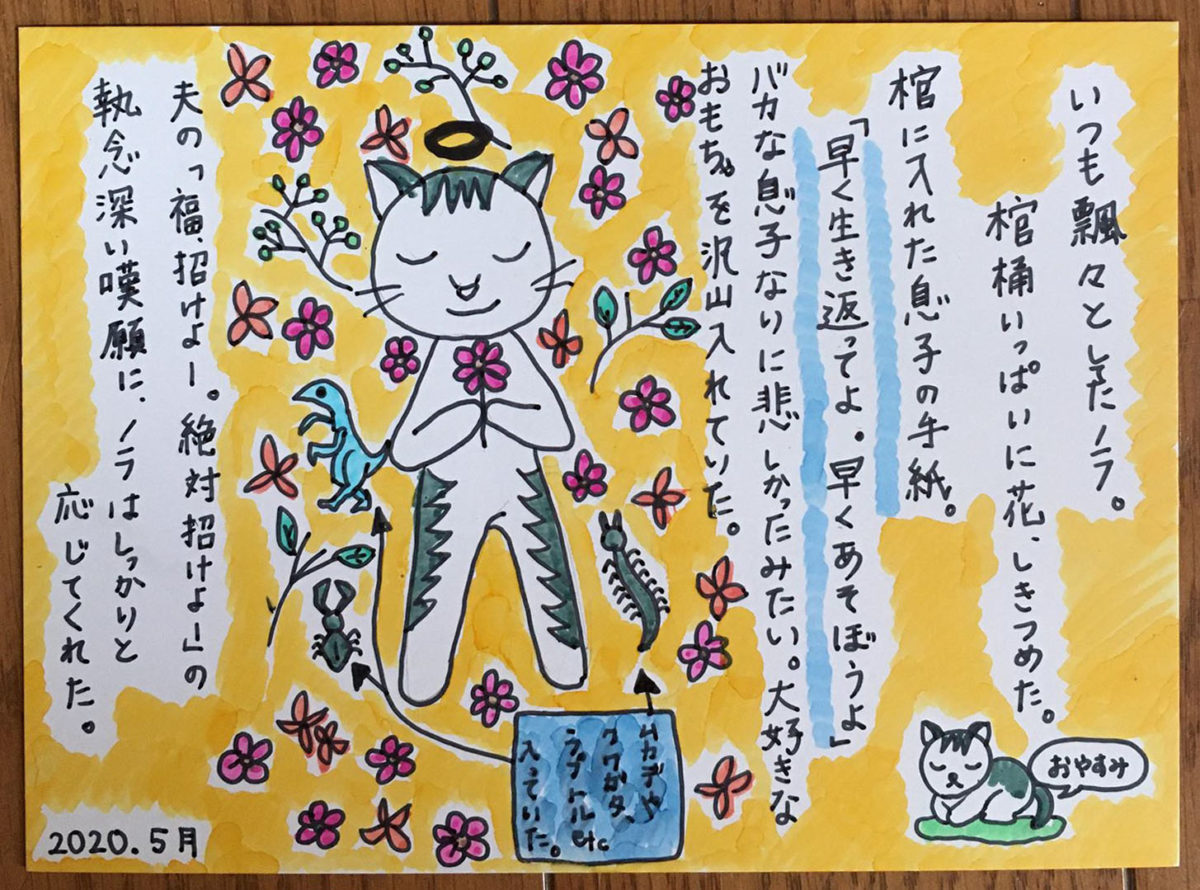 いつも飄々としてたノラ。
棺桶いっぱいに花、しきつめた。
棺に入れた息子の手紙。
「早く生き返ってよ。早くあそぼうよ」
バカな息子なりに悲しかったみたい。大好きな
おもちゃを沢山入れていた。
夫の「福、招けよー。絶対招けよー」の
執念深い嘆願に、ノラはしっかりと
応じてくれた。
ムカデや
クワガタ、
ラプトルetc
入っていた。
おやすみ
2020.5月